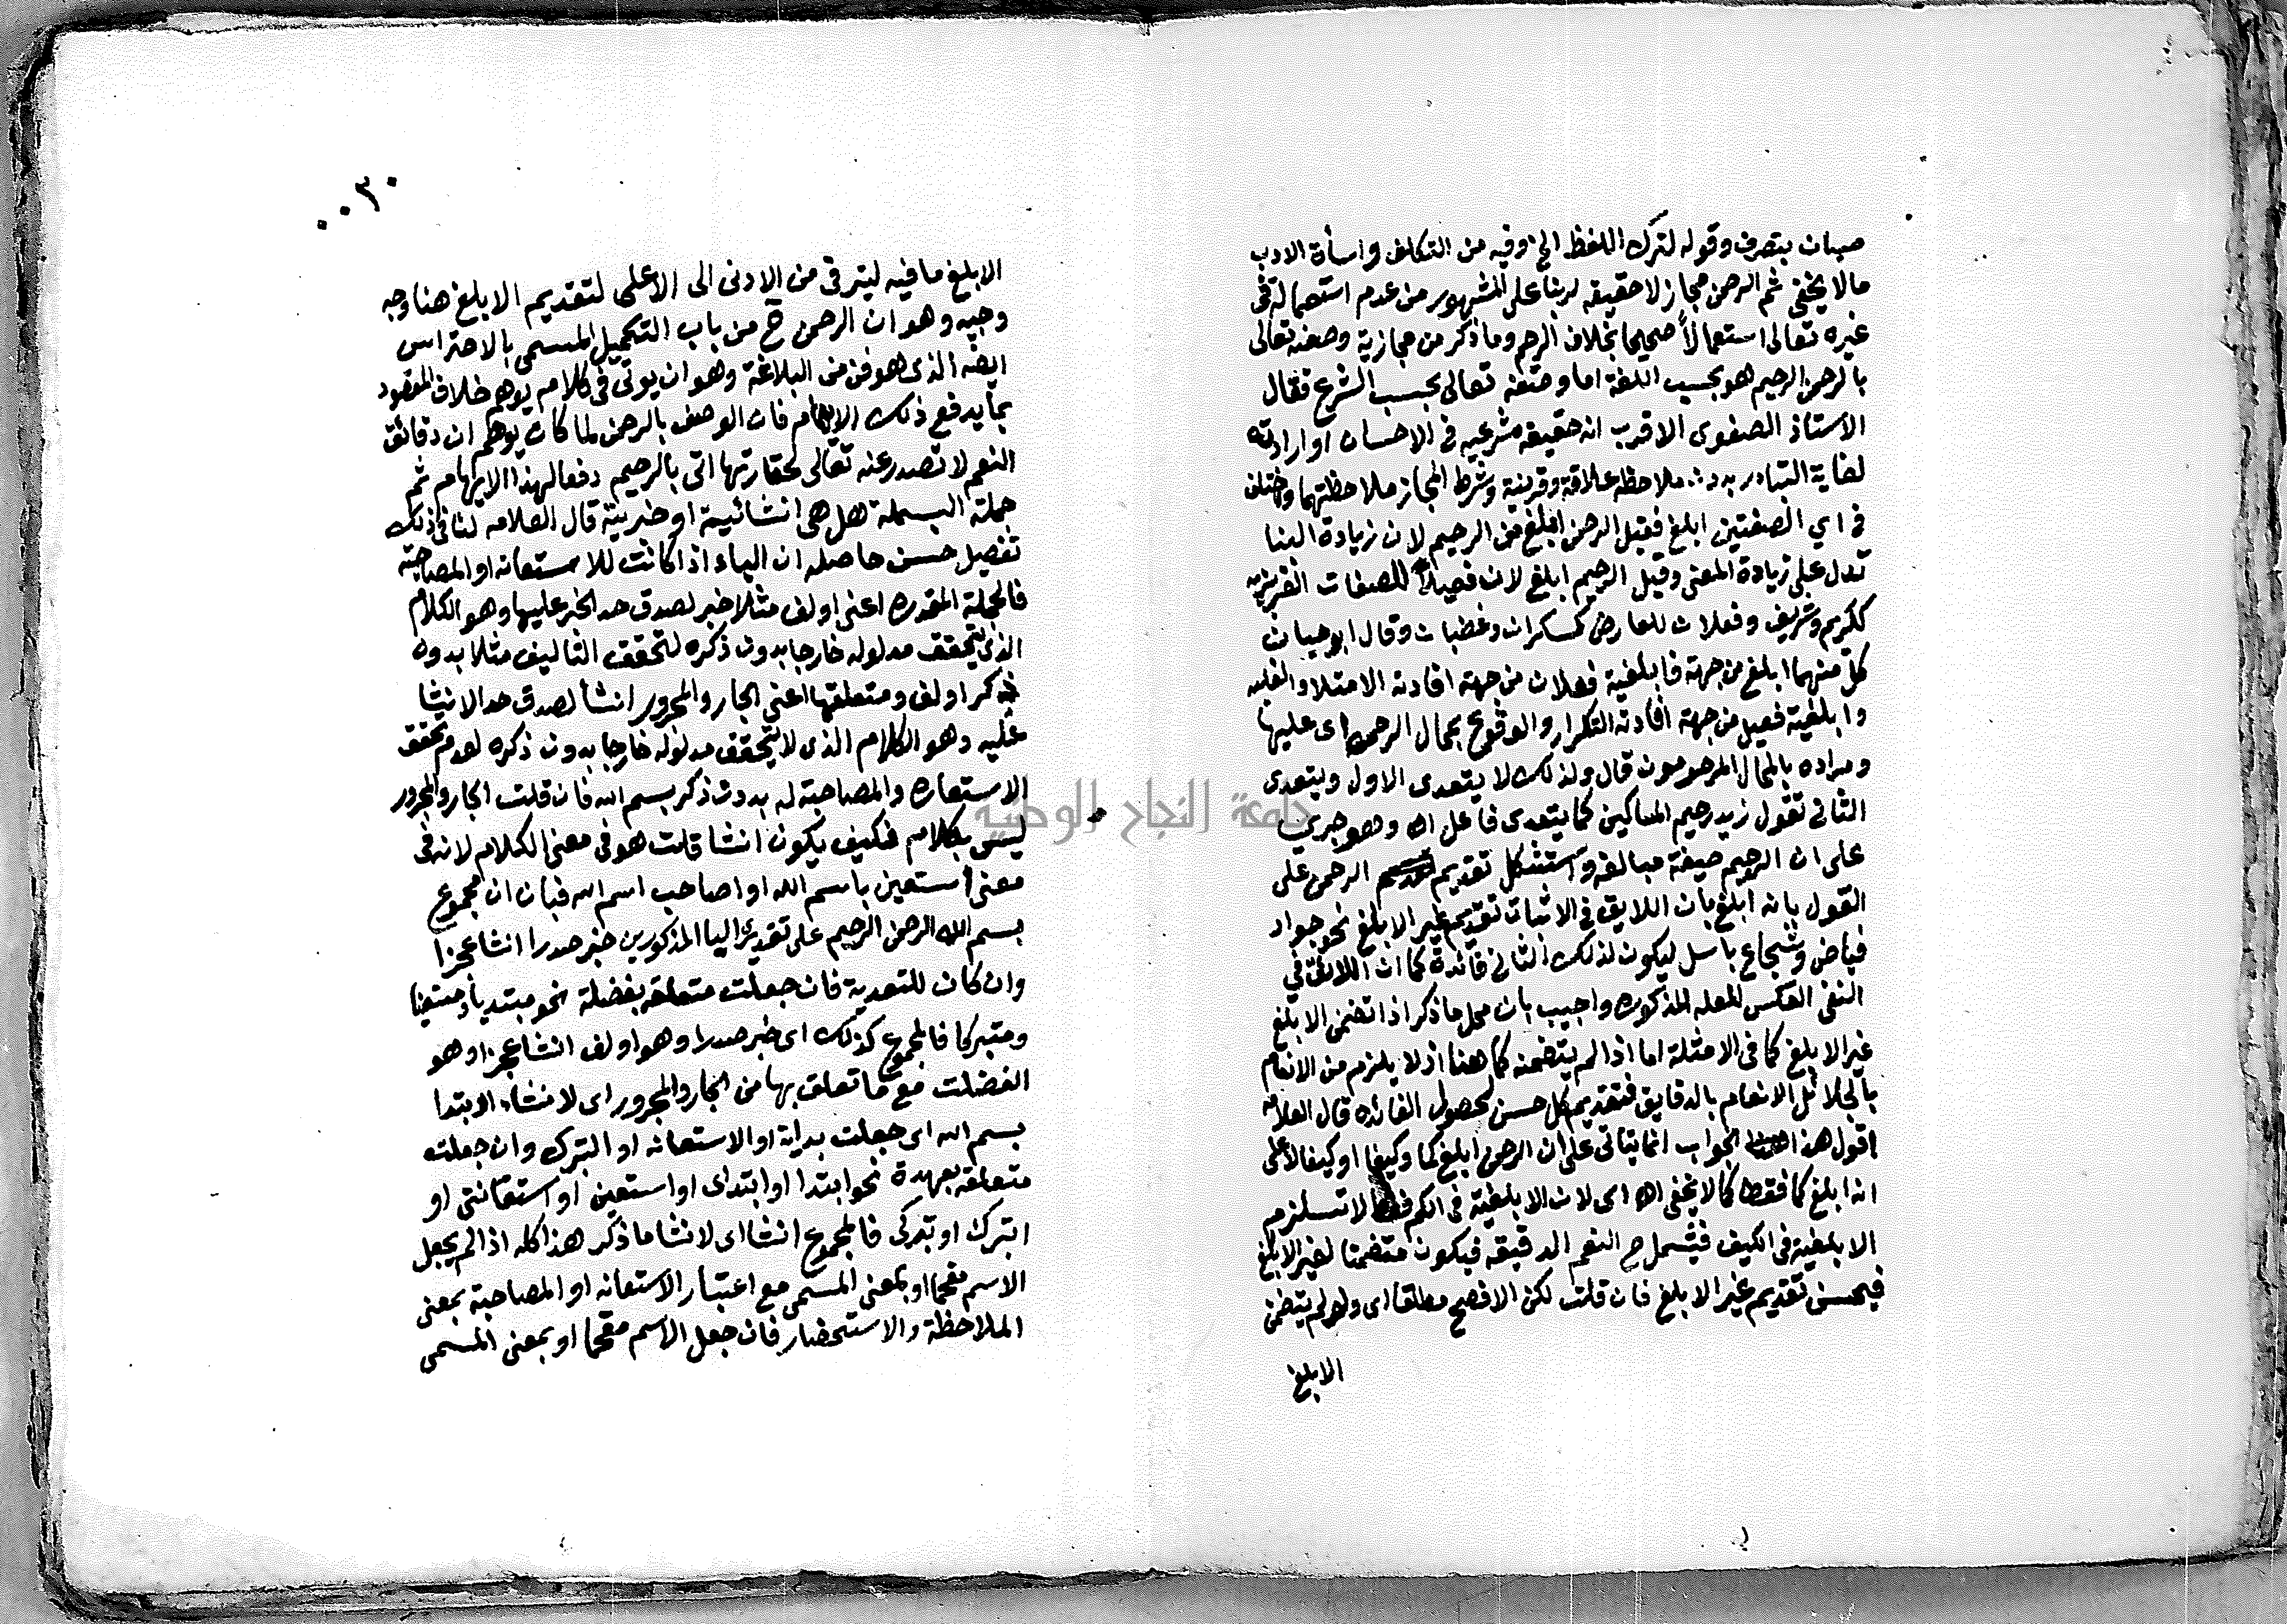 صبان بتصرف وقوله لترك اللفظ الخ وفيه من التكلف واسأة الادب
مالا يخفى ثم الرحمن مجاز لا حقيقه له بناعلى المشهور من عدم استعماله فى
غيره تعالى استعمالاً صحيحا بخلاف الرحيم وما ذكر من مجازية وصفه تعالى
بالرحمن الرحيم هو بحسب اللغة اما وصفه تعالى بحسب الشرع فقال
الاستاذ الصفوى الاقرب انه حقيقه شرعيه فى الاحسان او ارادته
لغاية التبادر بدون ملاحظة علاقة وقرينة وشرط المجاز ملاحظتهما واختلف
فى اي الصفتين ابلغ فقيل الرحمن ابلغ من الرحيم لان زيادة البنا
تدل على زيادة المعنى وقيل الرحيم ابلغ لان فعيلاً للصفات الغريزيه
ككريم وشريف وفعلان للعارض كسكران وغضبان وقال ابو حيان
كل منهما ابلغ من جهة فابلغية فعلان من جهة افادته الامتلا والغلبه
وابلغية فعيل من جهة افادته التكرار والوقوع بمحال الرحمه اى عليها
ومراده بالمحال المرحومون قال ولذلك لا يتعدى الاول ويتعدى
الثانى تقول زيد رحيم المساكين كما يتعدى فاعل اه وهو جرى
على ان الرحيم صيغة مبالغه واستشكل تقديم الرحمن على
القول بانه ابلغ بان اللايق فى الاثبات تقديم غير الابلغ نحو جواد
فياض وشجاع باسل ليكون لذلك الثانى فائدة كما ان اللائق فى
النفى العكس للعله المذكوره واجيب بان محل ما ذكر اذا تضمن الابلغ
غير الابلغ كما فى الامثلة اما اذا لم يتضمنه كما هنا اذ لا يلزم من الانعام
بالجلائل الانعام بالدقايق فتقديم كل حسن لحصول الفائده قال العلامه
اقول هذا الجواب انما يتاتى على ان الرحمن ابلغ كما وكيفا او كيفا لا على
انه ابلغ كما فقط كما لا يخفى اه اى لان الابلغية فى الكم فقط لا تستلزم
الابلغية فى الكيف فيشمل ح النعم الدقيقه فيكون متضمنا لغير الابلغ
فيحسن تقديم غير الابلغ فان قلت لكن الافصح مطلقا اى ولو لم يتضمن
الابلغ
٠٠٣٠
الابلغ ما فيه ليترقى من الادنى الى الاعلى لتقديم الابلغ هنا وجه
وجيه وهو ان الرحمن ح من باب التكميل المسمى بالاحتراس
ايضا الذى هو فن من البلاغة وهو ان يوتى فى كلام يوهم خلاف المقصود
بما يدفع ذلك الايهام فان الوصف بالرحمن لما كان يوهم ان دقائق
النعم لا تصدر عنه تعالى لحقارتها اتى بالرحيم دفعا لهذا الايهام ثم
جملة البسملة هل هى انشائية او خبرية قال العلامه لنا فى ذلك
تفصيل حسن حاصله ان الباء اذا كانت للاستعانه او المصاحبة
فالجملة المقدره اعنى اولف مثلا خبر لصدق حد الخبر عليها وهو الكلام
الذى يتحقق مدلوله خارجا بدون ذكره لتحقق التاليف مثلا بدون
ذكر اولف ومتعلقها اعنى الجار والمجرور انشأ لصدق حد الانشا
عليه وهو الكلام الذى لا يتحقق مدلوله خارجا بدون ذكره لعدم تحقق
الاستعانه والمصاحبة له بدون ذكر بسم الله فان قلت الجار والمجرور
ليس بكلام فكيف يكون انشا قلت هو فى معنى الكلام لانه فى
معنى استعين باسم الله او اصاحب اسم الله فبان ان مجموع
بسم الله الرحمن الرحيم على تقديرى اليا المذكورين خبر صدرا انشا عجزا
وان كان للتعدية فان جعلت متعلقه بفضلة نحو مبتديا ومستعينا
ومتبركا فالمجموع كذلك اى خبر صدرا وهو اولف انشا عجزا وهو
الفضلت مع ما تعلق بها من الجار والمجرور اى لانشاء الابتدا
بسم الله اى جعلت بداية او الاستعانه او التبرك وان جعلته
متعلقه بعهدة نحو ابتدا او ابتداى او استعين او استعانتى او
اتبرك او تبركى فالمجموع انشا اى لانشا ما ذكر هذا كله اذا لم يجعل
الاسم مقحما او بمعنى المسمى مع اعتبار الاستعانه او المصاحبة بمعنى
الملاحظة والاستحضار فان جعل الاسم مقحما او بمعنى المسمى
جامعة النجاح الوطنية